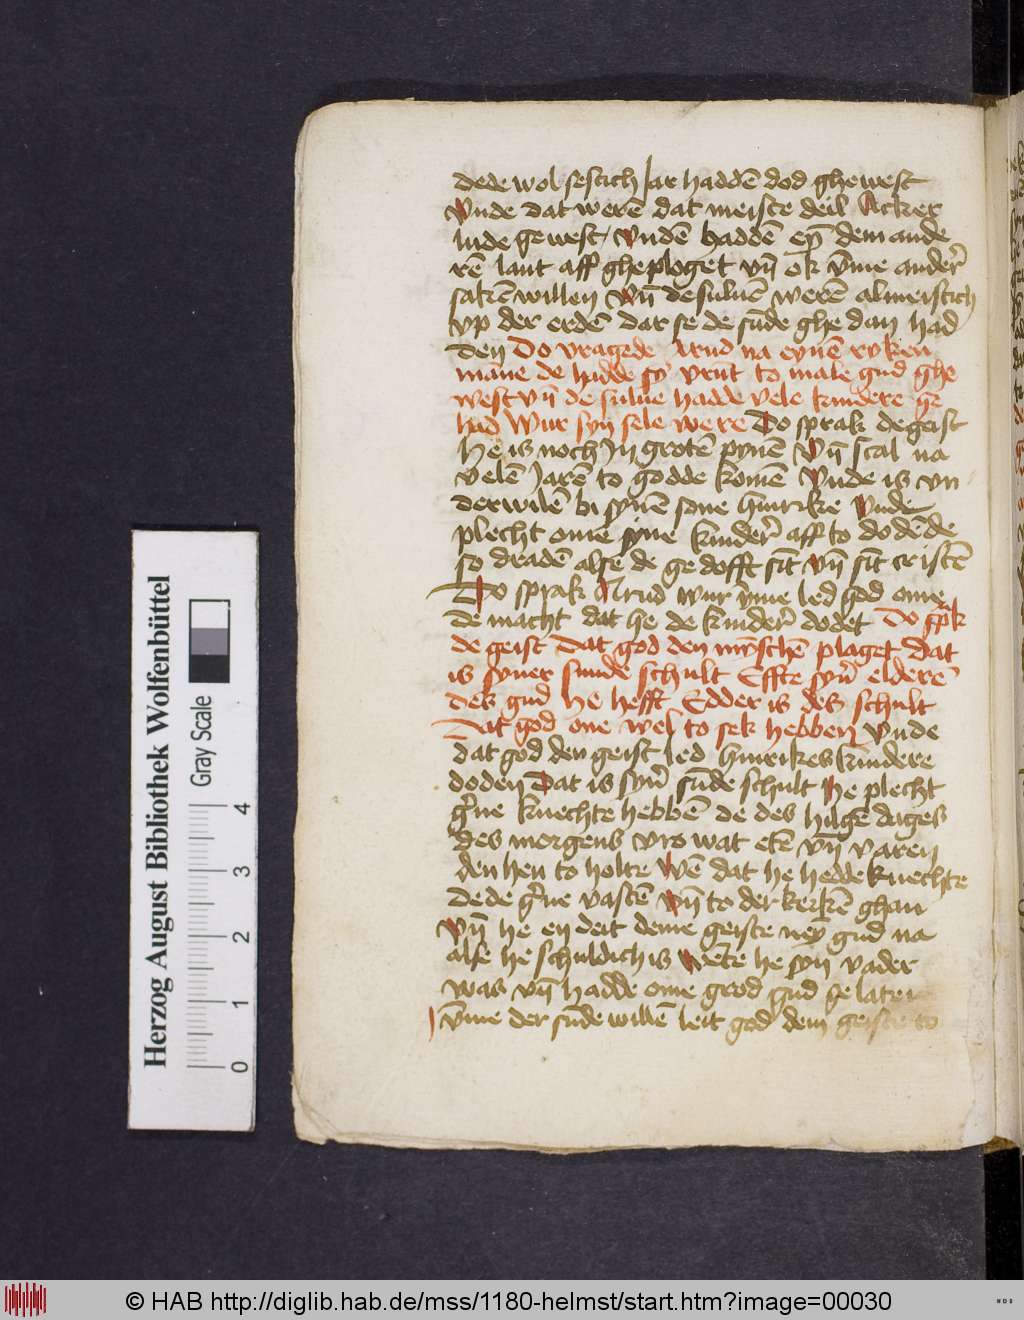 dede wol sestich Jar haddē dod ghewest
Vnde dat werē dat meiste deil Acker
lude gewest / vndē haddē eyn̄ dem ande
rē lant aff gheploget vn̄ ok v̄me ander̄
sakē willen Vn̄ de suluē werē almeistich
vp der erdē dar se de sūde ghe dan had
den Do vragede Arnd na eynē ryken
māne de hadde sy vrūt to male gud ghe
west vn̄ de sulue hadde vele kindere ge
had Wur syn sele were Do sprak de geist
He is noch Jn grotē pynē Vn̄ scal na
velē Jarē to godde komē Vnde is vn
derwilē bi synē sone hinrike Vnde
plecht ome syne kinder̄ aff to dodēde
so dradē alse de gedofft sīt vn̄ sīt cristē
Do sprak Arnd wur v̄me led god ome
de macht dat he de kinder̄ dodet Do sp̄k
de geist Dat god den mȳschē plaget dat
is syner sunde schult Effte syn̄ elderē
des gud he hefft Edder is des schult
Dat god one wel to sek hebben Vnde
dat god den geist led hinrikes kindere
doden Dat is syn̄ sūde schult he plecht
ḡne knechte hebbē de des hilgē dages
des morgens vro wat etē vn̄ varen
den hen to holte Wē dat he hedde knechte
de de ḡne vastē vn̄ to der kerkē ghan
Vn̄ he en deit deme geiste neȳ gud na
alse he schuldich is Wēte he syn vader
was vn̄ hadde ome grod gud gelaten
V̄me der sūde willē leit god dem geiste to
Herzog August Bibliothek Wolfenbüttel
Gray Scale
0 1 2 3 4
© HAB http://diglib.hab.de/mss/1180-helmst/start.htm?image=00030